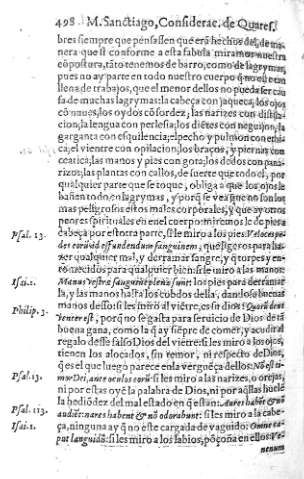 498 M. Sanctiago, Considerac. de Quares.
bres siempre que pensassen que erã hechos del, de ma-
nera que si conforme a esta fabula miramos nuestra
cõpostura, tãto tenemos de barro, como de lagrymas,
pues no ay parte en todo nuestro cuerpo q̃ no este tan
llena de trabajos, que el menor dellos no pueda ser cau
sa de muchas lagrymas: la cabeça con jaqueca, los ojos
cõ nuues, los oydos cõ sordez, las narizes con
la lengua con perlesia, los dietes con neguijon, la
garganta con esquilencia, el pecho y pulmon con
ca, el vientre con opilacion, los braços, y piernas con
ceatica, las manos y pies con gota, los dedos con pana-
rizos, las plantas con callos, de suerte que todo el, por
qualquier parte que se toque, obliga a que los ojos le
bañen todo en lagrymas, y porq̃ se vea que no son los
mas peligrosos estos males corporales, y que ay otros
peores spirituales en el cuerpo miremosle de pies a
Psal. 13. cabeça por estotra parte, si le miro a los pies. Veloces pe-
des eorũ ad effundendum sanguinem, que ligeros para ha-
zer qualquier mal, y derramar sangre, y q̃ torpes y en-
tomecidos para qualquier bien: si le miro a las manos.
Isai. 1. Manus vestræ sanguine plenæ sunt: los pies para derramar
la, y las manos hasta los cobdos della, dandose buenas
Philip. 3. manos desso: si les miro al viẽtre, es su dios: Quorũ deus
venter est, porq̃ no se gasta para seruicio de Dios de tã
buena gana, como la q̃ ay siẽpre de comer, y acudir al
regalo desse falso Dios del viẽtre: si les miro a los ojos,
tienen los alocados, sin temor, ni respecto de Dios,
q̃ es el que luego parece en la verguẽça dellos: Nõ est ti-
Psal. 13. mor Dei, ante oculos eorũ: si les miro a las narizes, o orejas,
ni por estas oyẽ la palabra de Dios, ni por aq̃llas huelẽ
la hediõdez del mal estado en q̃ estan: Aures habẽt & nõ
Psal. 113. audiẽt: nares habent & nõ odorabunt: si les miro a la cabe-
Isai. 1. ça, ninguna ay q̃ no este cargada de vaguido: Omne ca-
put languidũ: si les miro a los labios, põçoña en ellos: Ve-
nenum